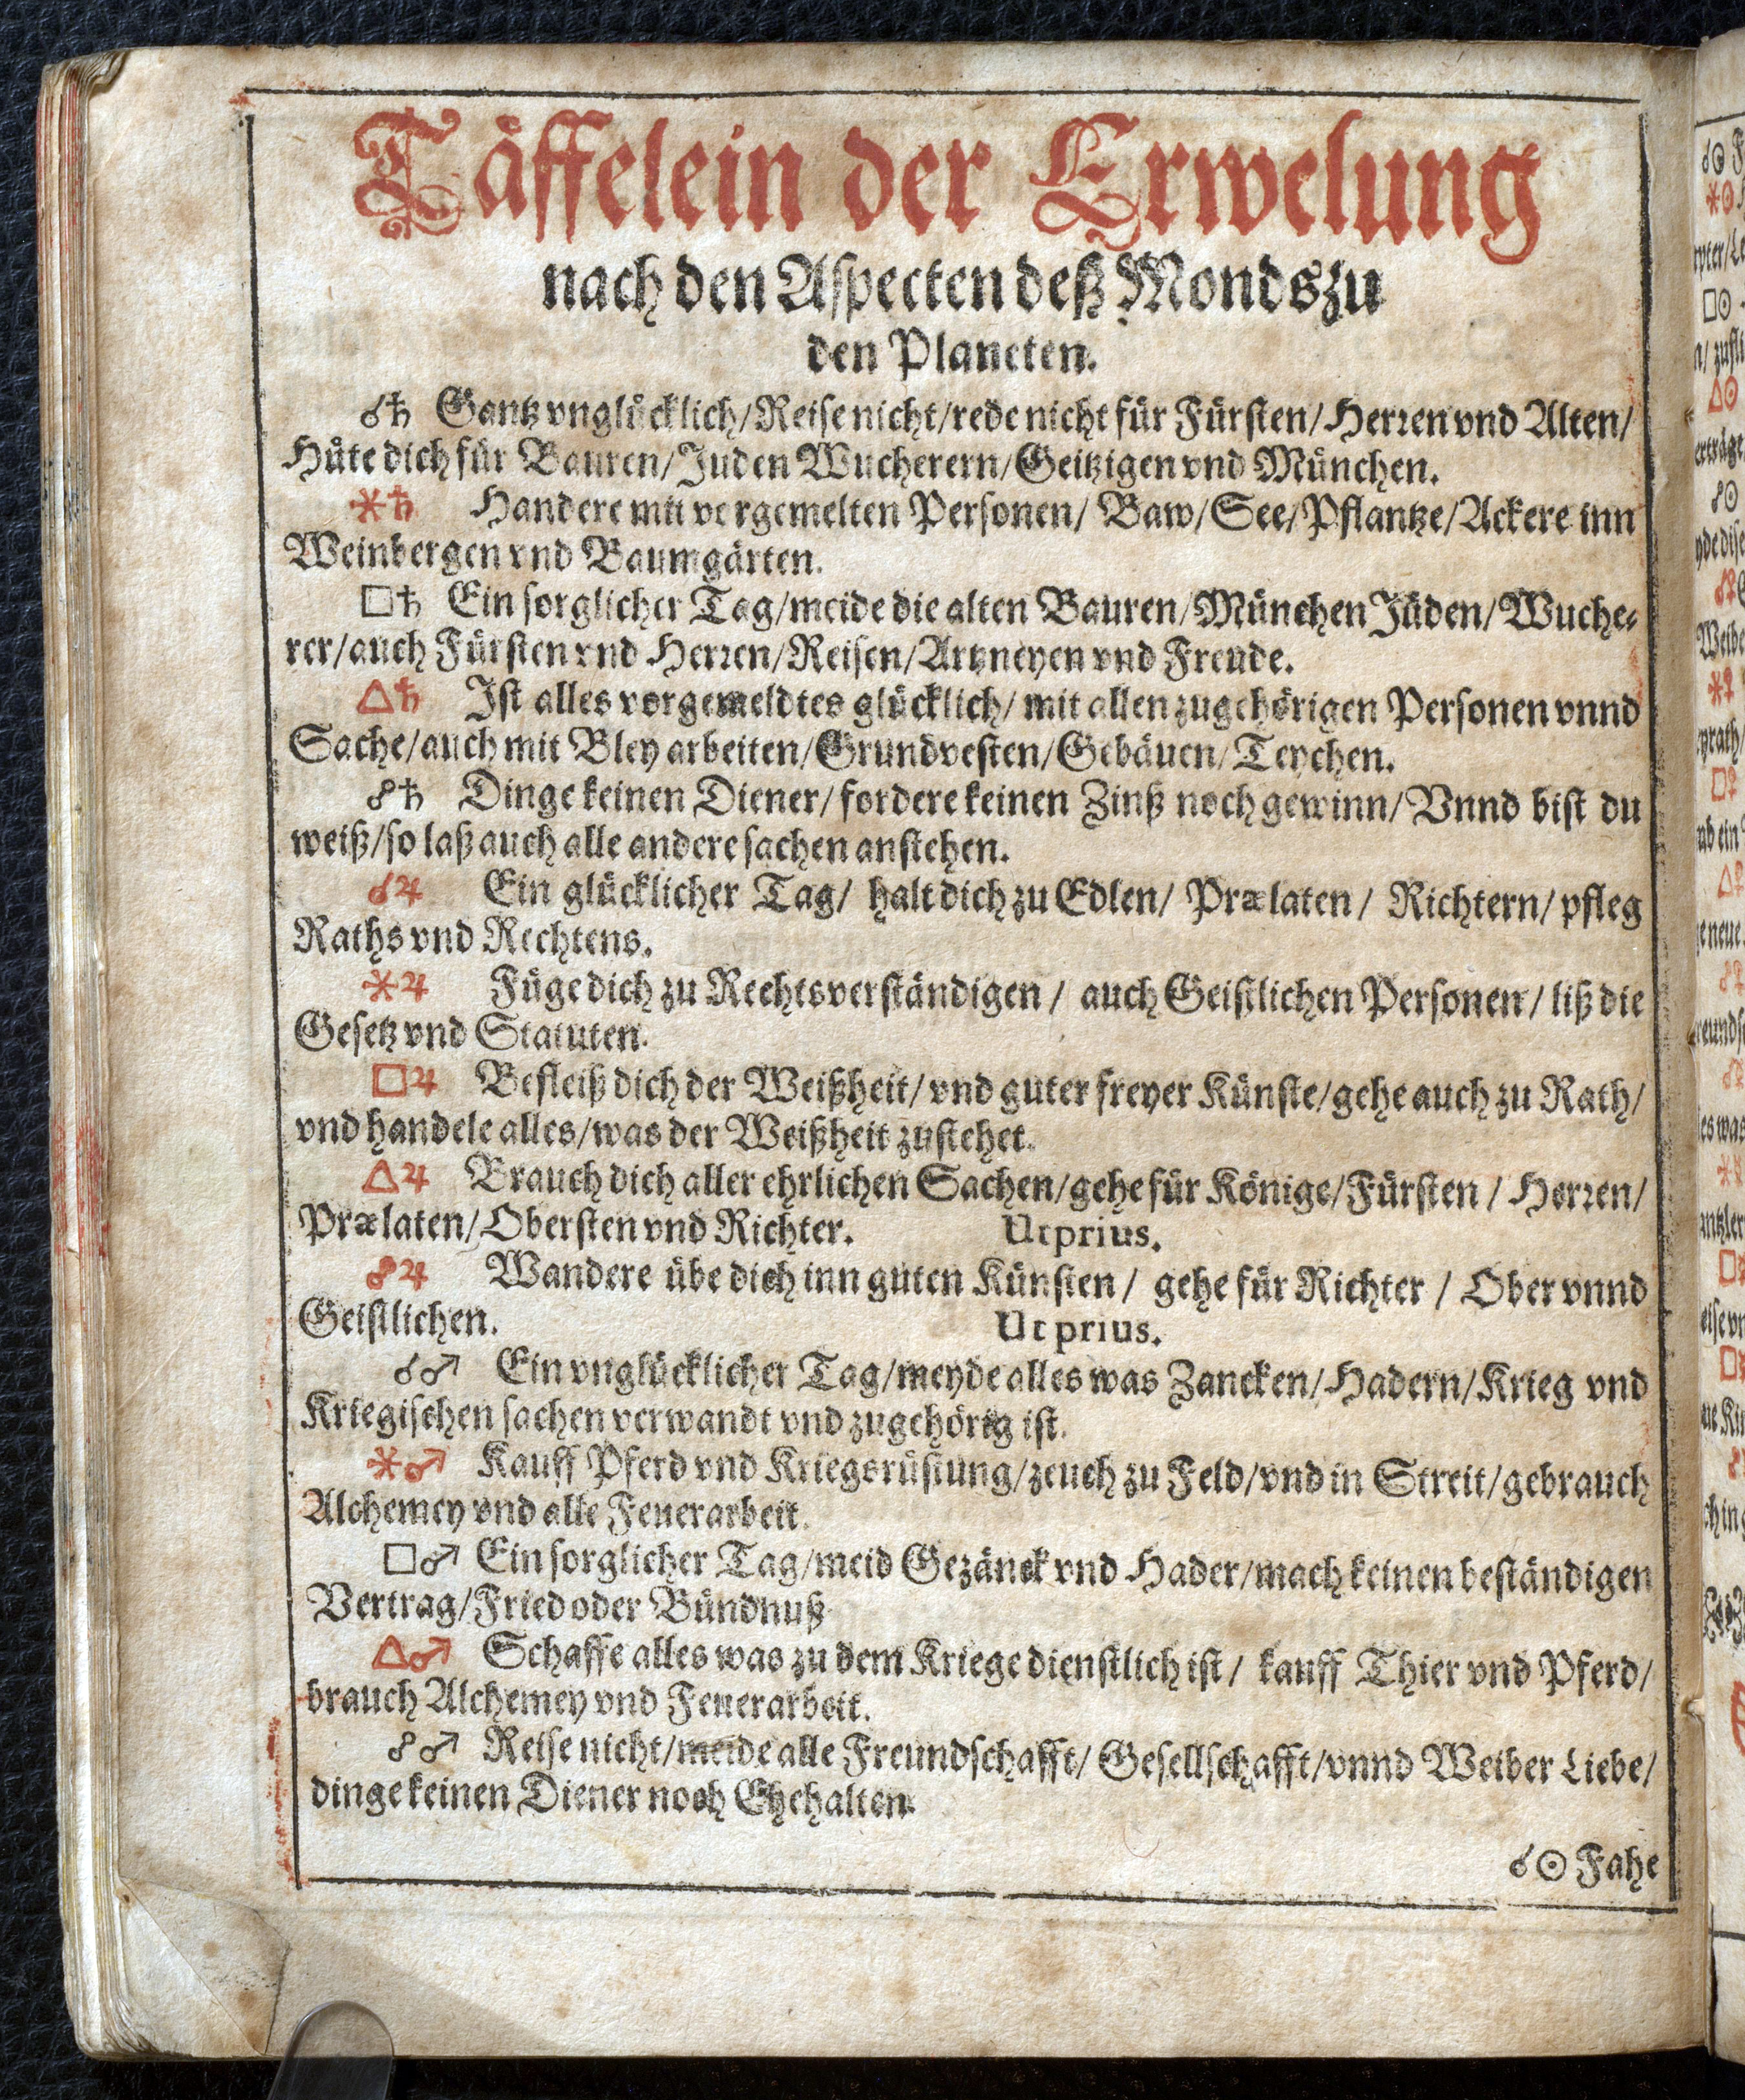 Täffelein der Erwelung
nach den Aspecten deß Monds zu
den Planeten.
☌♄ Gantz vnglücklich/Reise nicht/rede nicht für Fürsten/Herren vnd Alten/
Hüte dich für Bauren/Juden Wucherern/Geitzigen vnd München.
⚹♄ Handere mit vorgemelten Personen/ Baw/See/Pflantze/Ackere inn
Weinbergen vnd Baumgärten.
□♄ Ein sorglicher Tag/meide die alten Bauren/München Jüden/Wuche⸗
rer/auch Fürsten vnd Herren/Reisen/Artzneyen vnd Freude.
△♄ Ist alles vorgemeldtes glücklich/ mit allen zugehörigen Personen vnnd
Sache/auch mit Bley arbeiten/Grundvesten/Gebäuen/Teychen.
☍♄ Dinge keinen Diener/fordere keinen Zinß noch gewinn/Vnnd bist du
weiß/so laß auch alle andere sachen anstehen.
☌♃ Ein glücklicher Tag/ halt dich zu Edlen/ Prælaten/ Richtern/ pfleg
Raths vnd Rechtens.
⚹♃ Füge dich zu Rechtsverständigen/ auch Geistlichen Personen/ liß die
Gesetz vnd Statuten.
□♃ Befleiß dich der Weißheit/vnd guter freyer Künste/gehe auch zu Rath/
vnd handele alles/was der Weißheit zustehet.
△♃ Brauch dich aller ehrlichen Sachen/gehe für Könige/Fürsten/ Herren/
Prælaten/Obersten vnd Richter. Ut prius.
☍♃ Wandere übe dich inn guten Künsten/ gehe für Richter/ Ober vnnd
Geistlichen. Ut prius.
☌♂ Ein vnglücklicher Tag/meyde alles was Zancken/Hadern/Krieg vnd
Kriegischen sachen verwandt vnd zugehörig ist.
⚹♂ Kauff Pferd vnd Kriegsrüstung/zeuch zu Feld/vnd in Streit/gebrauch
Alchemey vnd alle Feuerarbeit.
□♂ Ein sorglicher Tag/meid Gezänck vnd Hader/mach keinen beständigen
Vertrag/Fried oder Bündnuß
△♂ Schaffe alles was zu dem Kriege dienstlich ist/ kauff Thier vnd Pferd/
brauch Alchemey vnd Feuerarbeit.
☍♂ Reise nicht/meide alle Freundschafft/ Gesellschafft/vnnd Weiber Liebe/
dinge keinen Diener noch Ehehalten.
☌☉ Fahe